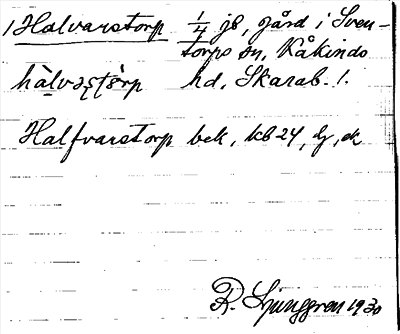 1 Halvarstorp 1/4 js, gård i Sven-
torps sn, Kåkinds
hd, Skarab. l.
Halfvarstorp bek, kb 24,
R. Ljunggren 1930